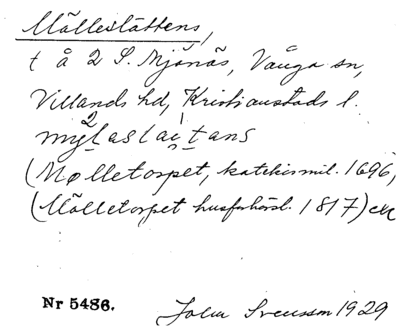 Mölleslättens,
t å 2 S. Mjönäs, Vånga sn,
Villands hd, Kristianstads l.
2
mylaslaitans
(Mølletorpet, katekismil. 1696,
(Mölletorpet husförhörsl. 1817)
Nr 5486. John Svensson 1929